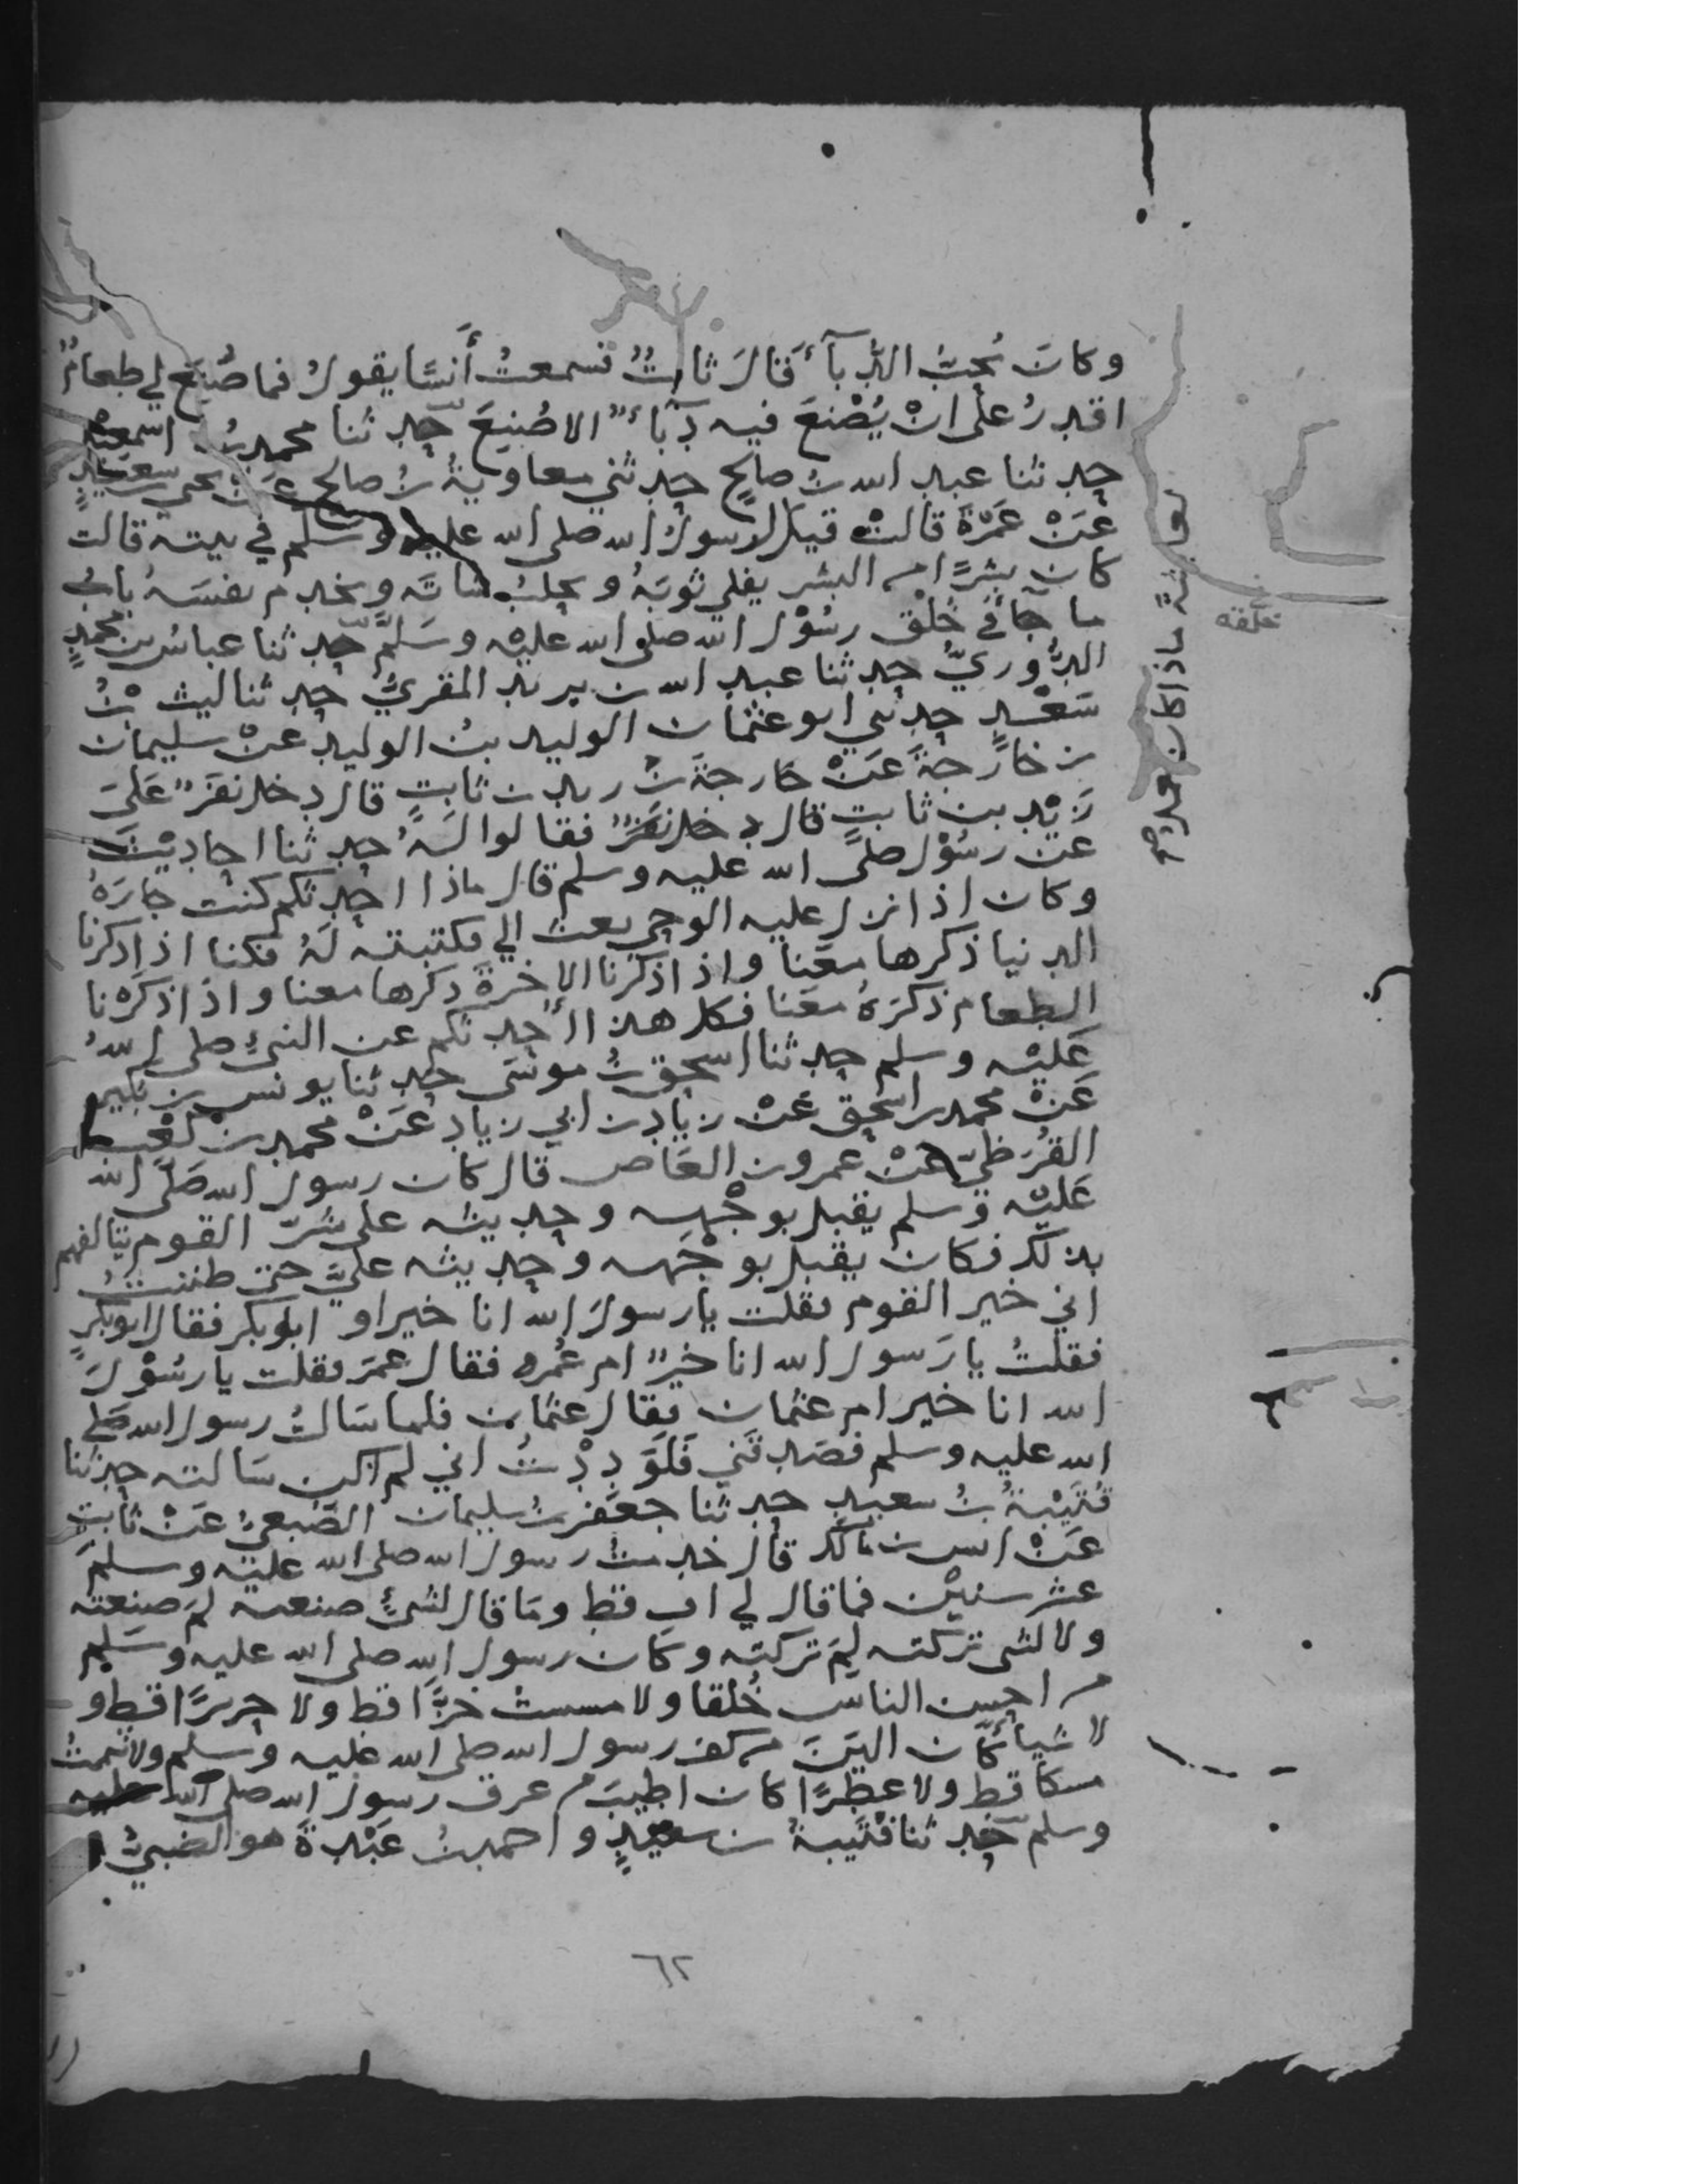 وكان يُحبُّ الدُّبآءَ قال ثابتٌ فسمعتُ أنسًا يقول فما صُنِعَ لي طعامٌ
اقدرُ على انْ يُصْنعَ فيه دبّآءٌ الا صُنِعَ حدثنا محمد بن اسمعيل
حدثنا عبد الله بن صالحٍ حدثني معاوية بن صالح عن يحيى بن سعيدٍ
عنْ عَمْرَةَ قالتْ قيل رسول الله صلى الله عليه وسلم في بيته قالت
كان بشرًا من البشر يفلي ثوبَهُ ويحلبُ شاتَه ويخدم نفسَه بابُ
ما جآءَ في خُلْق رسُوْل الله صلى الله عليْه وسَلمَّ حدثنا عباسُ بن محمدٍ
الدُّوريّ حدثنا عبد الله بن يزيد المقريُّ حدثنا ليث بْنُ
سَعْدٍ حدثني ابو عثمان الوليد بنُ الوليد عنْ سليمان
بن خارجةَ عَنْ خارجةَ بْن زيد بن ثابتٍ قال دخل نفرٌ عَلَى
زَيْد بن ثابتٍ قال دخل نفرٌ فقالوا لَهُ حدثنا احاديْثَ
عن رسُوْل صلىَّ الله عليه وسلم قال ماذا احدثكم كنت جارَهُ
وكان اذا نزل عليه الوحي بعث الي فكتبته لَهُ فكنا اذا ذكرنا
الدنيا ذكرها معَنا واذا ذكرنا الاخرةَ ذكرها معنا واذا ذكرْنا
الطعام ذكرَهُ معَنا فكل هذا أحدثكم عن النبيّ صلى اللهُ
عَليْه وسلم حدثنا اسحق بنُ موسَى حدثنا يونس بن بكير
عَنْ محمد بن اسحق عَنْ زيَاد بن ابي زياد عَنْ محمد بن كعْب
القُرَظيّ عنْ عمرو بن العَاص قال كان رسول الله صَلَّى الله
عَليْه وَسلم يقبل بوجْهِه وحديثه على شرّ القوم يتالفهم
بذلك فكان يقبل بوجْهَه وحديثه عليّ حتى ظننتُ
اني خير القوم فقلت يا رسولَ الله انا خير او ابو بكر فقال ابو بكرٍ
فقلتُ يا رَسول الله انا خيرٌ ام عُمر فقال عمَر فقلت يا رسُوْلَ
الله انا خير ام عثمان فقال عثمان فلما سَالتُ رسول الله صَلى
الله عليه وسلم فصَدقَني فَلَوَدِدْتُ اني لم اكن سَالته حدثنا
قُتَيْبةُ بنُ سعيد حدثنا جعفر بنُ سليمان الضّبعيُّ عَنْ ثابتٍ
عَنْ انس بن مَالك قال خدمتُ رسول الله صلى الله عليْه وسلمَ
عشر سنيْن فما قال لي اف قط ومَا قال لشيءٍ صنعته لمَ صنعته
ولا لشى تركته لِمَ تركته وكان رسول الله صلى الله عليه وسَلم
من احسن الناس خُلقا ولا مسست خزًّا قط ولا حريرًا قط و
لا شيأً كان اليَن من كف رسول الله صلى الله عليه وسلم ولا شممتُ
مسكا قط ولا عطرًا كان اطيبَ من عرق رسول الله صلى الله عليه
وسلم حدثنا قتَيبةُ بن سعيدٍ واحمد بنُ عَبْدةَ هو الضبيُّ
لعائشة ماذا كان
خلقه
٦٢